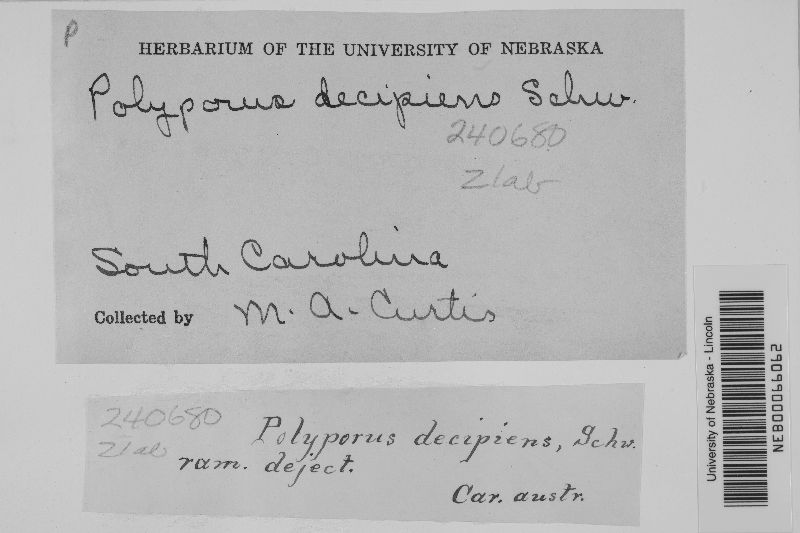 P
HERBARIUM OF THE UNIVERSITY OF NEBRASKA
Polyporus decipiens Schw.
240680
2lab
South Carolina
Collected by M. A. Curtis
University of Nebraska - Lincoln
NEB00066062
240680
2lab
Polyporus decipiens, Schw.
ram. deject.
Car. austr.